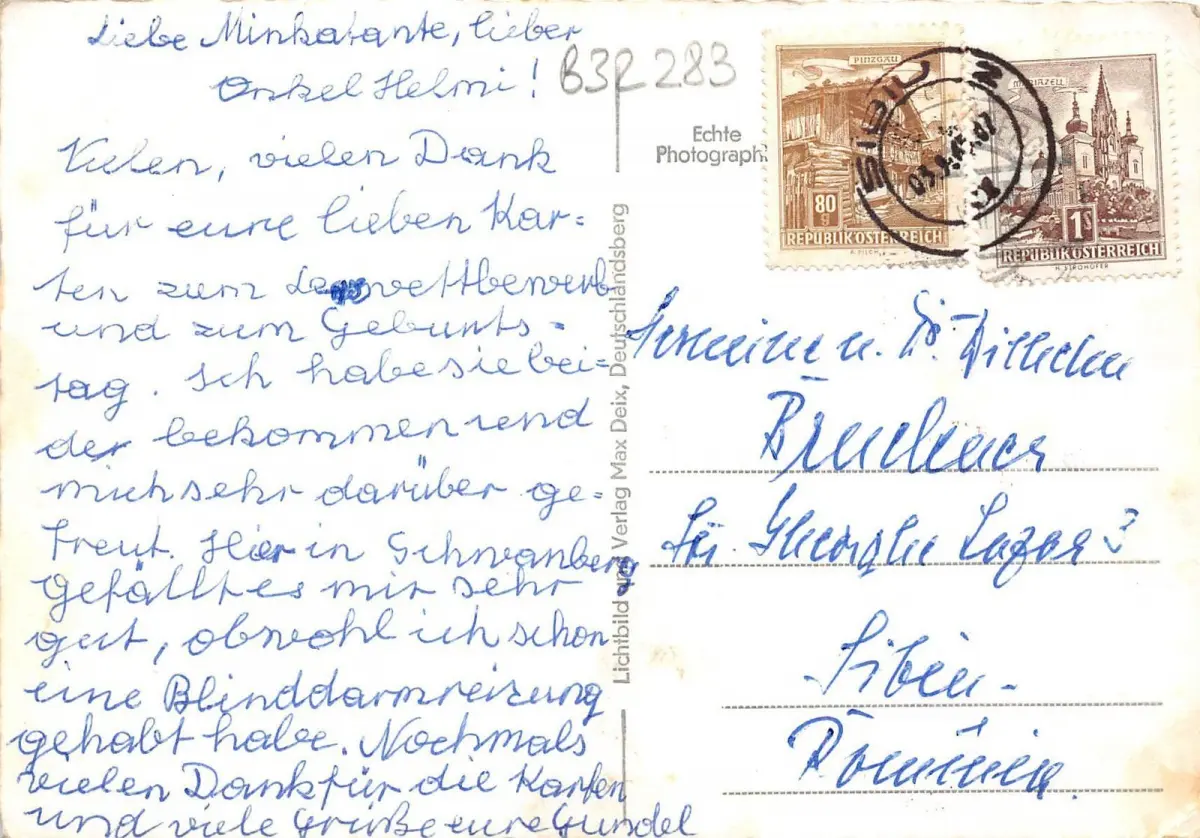 Liebe Minkatante, lieber
Onkel Helmi!
Vielen, vielen Dank
für eure lieben Kar-
ten zum wettbewerb
und zum Geburts-
tag. Ich habe sie bei-
der bekommen und
mich sehr darüber ge-
freut. Hier in Schwanberg
gefällt es mir sehr
gut, obwohl ich schon
eine Blinddarmreizung
gehabt habe. Nochmals
vielen Dank für die Karten
und viele Grüße eure Gundel
B3P 283
Echte
Photographie
Lichtbild und Verlag Max Deix, Deutschlandsberg
PINZGAU
80
g
REPUBLIK ÖSTERREICH
A. PILCH
MARIAZELL
1S
REPUBLIK ÖSTERREICH
H. STROHOFER
SIBIU
Hermine u. Dr.
Bruckner
Str. Gheorghe Lazar 3
Sibiu -
Romînia.